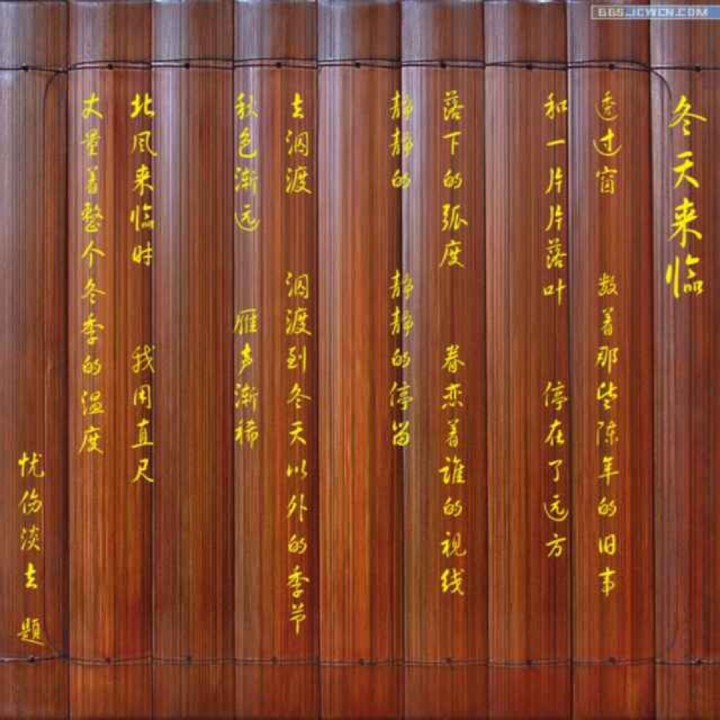 BBS.JCWCN.COM
冬天来临
透过窗 数着那些陈年的旧事
和一片片落叶 停在了远方
落下的弧度 眷恋着谁的视线
静静的 静静的停留
去泅渡 泅渡到冬天以外的季节
秋色渐远 雁声渐稀
北风来临时 我用直尺
丈量着整个冬季的温度
忧伤淡去 题